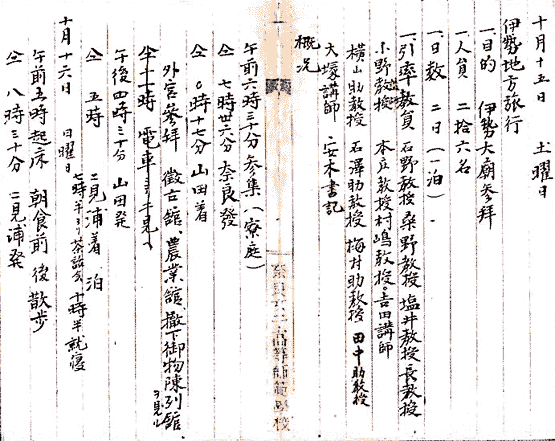 十月十五日　土曜日
伊勢地方旅行
一、目的　伊勢大廟参拜
一、人員　二拾六名
一、日数　二日（一泊）
一、引率教員　石野教授　桑野教授　塩井教授　長教授
小野教授　本庄教授　村嶋教授　吉田講師
横山助教授　石澤助教授　梅村助教授　田中助教授
大塚講師　安木書記
概况
奈良女子高等師範學校
午前六時三十分参集（寮庭）
仝　七時卅六分　奈良發
仝　〇時十七分　山田着
外宮参拜　徴古館、農業館、撤下御物陳列館ヲ見ル
仝　十一時　電車ニテ二見ヘ
午後四時三十分　山田発
仝　五時　二見浦着　泊
七時半ヨリ茶話会　十時半就寝
十月十六日　日曜日
午前五時起床　朝食前後散歩
仝　八時三十分　二見浦発